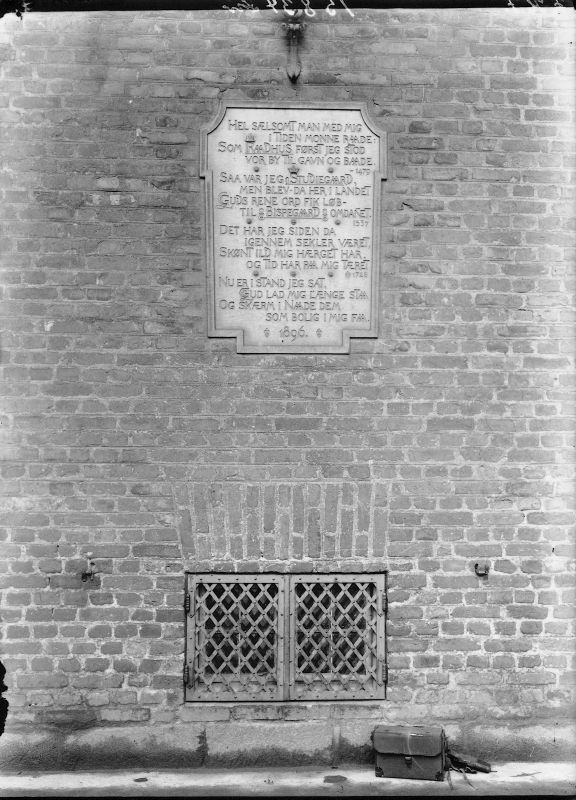 HEL SÆLSOMT MAN MED MIG
I TIDEN MONNE RAADE:
SOM RAADHUS FØRST JEG STOD
VOR BY TIL GAVN OG BAADE.
1479
SAA VAR JEG STUDIEGAARD,
MEN BLEV, DA HER I LANDET
GUDS RENE ORD FIK LØB
TIL BISPEGAARD OMDANET.
1537
DET HAR JEG SIDEN DA
IGENNEM SEKLER VÆRET,
SKØNT ILD MIG HÆRGET HAR,
OG TID HAR PAA MIG TÆRET
1728
NU ER I STAND JEG SAT.
GUD LAD MIG LÆNGE STAA
OG SKÆRM I NAADE DEM
SOM BOLIG I MIG FAA.
1896.